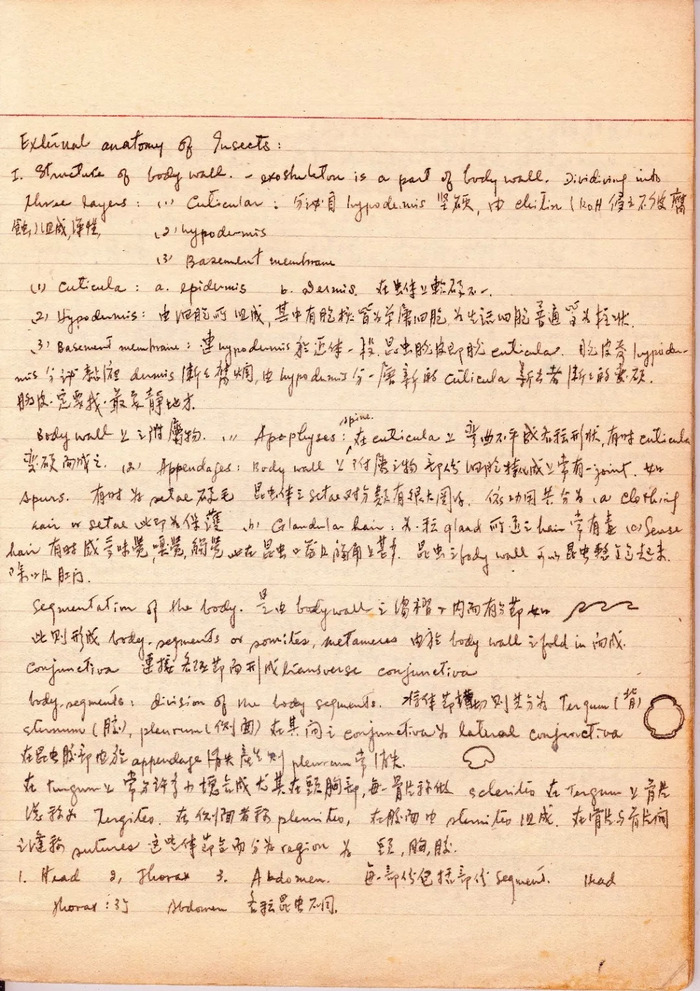 External anatomy of Insects:
I. Structure of body wall. - exoskeleton is a part of body wall. Dividiving into
three layers: (1) Cuticular: 分泌自 hypodermis 坚硕, 由 chitin (KOH 不被腐
蚀) 组成, 弹性. (2) hypodermis
(3) Basement membrane
(1) Cuticula: a. epidermis b. dermis. 在虫体上软硕不一.
(2) Hypodermis: 由细胞所组成, 其中有胞核皆为单层细胞, 为生活细胞普通皆为柱状.
(3) Basement membrane: 连 hypodermis 昆虫脱皮即脱 cuticular. 脱皮 hypoder-
mis 分泌 dermis 渐之腐烂, 由 hypodermis 分一层新的 cuticula 渐之
脱皮一定要找一最安静地方.
spine.
Body wall 上之附属物. (1) Apophyses: 在 cuticula 上弯曲不平成各种形状, 有时 cuticula
变硕而成之. (2) Appendages: Body wall 上附属之物 细胞 成上常有一 joint. 如
spurs. 有时为 setae 硕毛 昆虫体上 setae 对分类有很大 依功用共分为 (a) clothing
hair or setae 此即为保护 (b) Glandular hair: 为一种 gland 所通之 hair 常有毒 (c) Sense
hair 有时成 味觉, 嗅觉, 触觉 在昆虫口 触角上甚多. 昆虫之 body wall 可以昆虫 起来.
除口及肛门.
Segmentation of the body. 是由 body wall 之 内而有节如
此则形成 body. segments or somites, metameres 由於 body wall 之 fold in 而成.
Conjunctiva 连接各环节而形成 transverse conjunctiva
body. segments: division of the body segments. 将体节横切则共分为 Tergum (背)
sternum (腹), pleurum (侧面) 在其间之 conjunctiva 为 lateral conjunctiva
在昆虫腹部由於 appendage 消失 则 pleurum 常消失.
在 tergum 上常分许多小块合成尤其在头胸部, 每一骨片称做 sclerites 在 Tergum 上骨片
Tergites. 在侧面者称 pleurites, 在腹面由 sternites 组成. 在骨片与骨片间
之缝称 sutures 这些体节全而分为 region 为 头, 胸, 腹.
1. Head 2. Thorax 3. Abdomen. 每一部份包括部份 segment. Head
Thorax: 3节 Abdomen 各种昆虫不同.